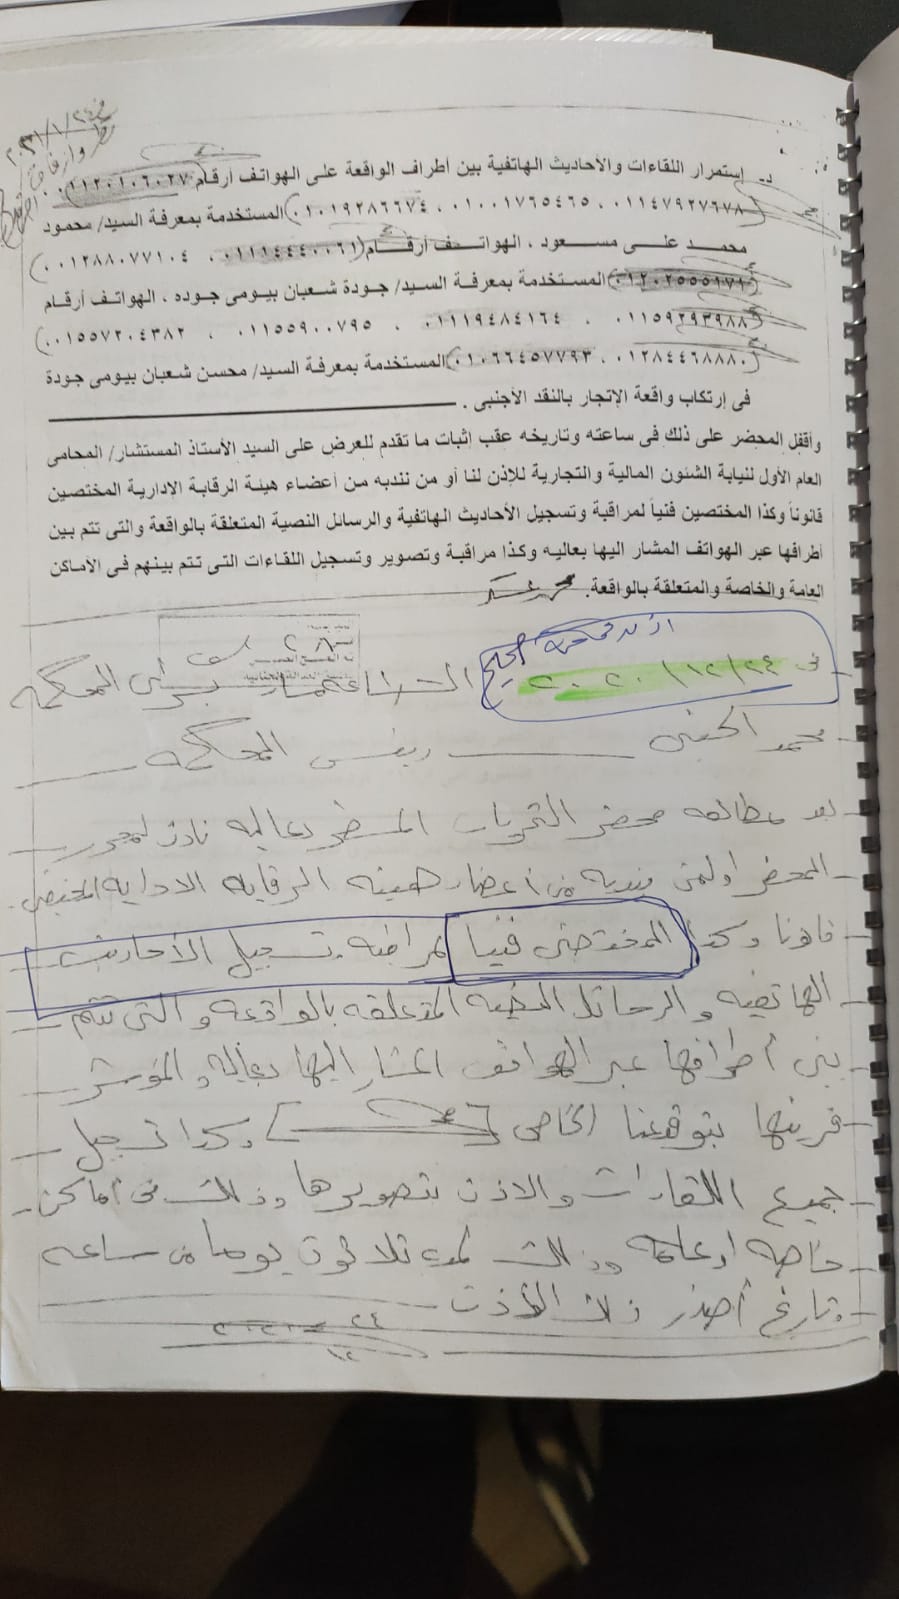 ٢٠٢١/١/٢٤
د- إستمرار اللقاءات والأحاديث الهاتفية بين أطراف الواقعة على الهواتف أرقام (٠١١٢٠١٠٦٠٢٧ ،
٠١١٤٧٩٢٧٦٧٨ ، ٠١٠٠١٧٦٥٤٦٥ ، ٠١٠١٩٢٨٦٦٧٤) المستخدمة بمعرفة السيد/ محمود
محمد على مسعود ، الهواتف أرقام (٠١١١٤٤٤٠٠٦١ ، ٠١٢٨٨٠٧٧١٠٤ ،
٠١٢٠٢٥٥٥١٧١) المستخدمة بمعرفة السيد/ جودة شعبان بيومى جوده ، الهواتف أرقام
(٠١١٥٩٢٩٣٩٨٨ ، ٠١١١٩٤٨٤١٦٤ ، ٠١١٥٥٩٠٠٧٩٥ ، ٠١٥٥٧٢٠٤٣٨٢ ،
٠١٢٨٤٤٦٨٨٨٠ ، ٠١٠٦٦٤٥٧٧٩٣) المستخدمة بمعرفة السيد/ محسن شعبان بيومى جودة
فى إرتكاب واقعة الإتجار بالنقد الأجنبى .
وأقفل المحضر على ذلك فى ساعته وتاريخه عقب إثبات ما تقدم للعرض على السيد الأستاذ المستشار/ المحامى
العام الأول لنيابة الشئون المالية والتجارية للإذن لنا أو من نندبه من أعضاء هيئة الرقابة الإدارية المختصين
قانوناً وكذا المختصين فنياً لمراقبة وتسجيل الأحاديث الهاتفية والرسائل النصية المتعلقة بالواقعة والتى تتم بين
أطرافها عبر الهواتف المشار اليها بعاليه وكذا مراقبة وتصوير وتسجيل اللقاءات التى تتم بينهم فى الأماكن
العامة والخاصة والمتعلقة بالواقعة.
فى ٢٠٢٠/١٢/٢٤ المحكمة
محمد رئيس المحكمة
بعد مطالعه محضر التحريات المسطر بعاليه نأذن لمحرر
المحضر او لمن يندبه من أعضاء هيئه الرقابه الاداريه المختصين
قانونا وكذا المختصين فنيا لمراقبه وتسجيل الأحاديث
الهاتفيه والرسائل النصيه المتعلقه بالواقعه والتى تتم
بين أطرافها عبر الهواتف المشار اليها بعاليه والمؤشر
قرينها بتوقيعنا الخاص وكذا تسجيل
جميع اللقاءات والاذن بتصويرها وذلك فى أماكن
خاصه او عامه وذلك لمده ثلاثون يوما من ساعه
وتاريخ أصدار ذلك الأذن
٢٤
١٢
٢٠٢٠